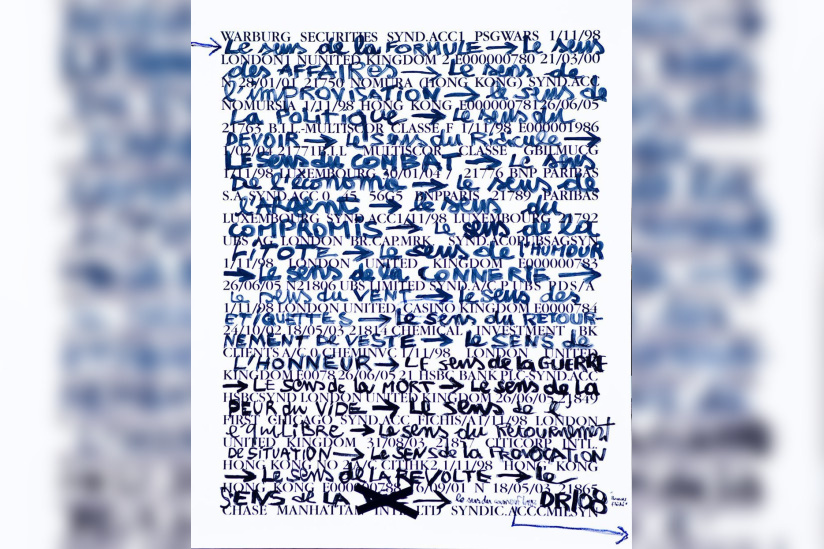 WARBURG SECURITIES SYND.ACC1 PSGWARS 1/11/98
Le sens de la FORMULE → Le sens
LONDON1 NUNITED KINGDOM 2 E000000780 21/03/00
des AFFAIRES → Le sens de
N 28/01/01 21750 NOMURA (HONG KONG) SYND.ACC
l'IMPROVISATION → le sens de
NOMURSIA 1/11/98 HONG KONG E00000078126/06/05
La POLITIQUE → Le sens du
21763 B.I.L.-MULTISCOR CLASSE F 1/11/98 E000001986
DEVOIR → Le sens du Ridicule →
1/02/04 21771 B.I.L MULTISCOR CLASSE GBILMUCG
LE SENS du COMBAT → Le sens
1/11/98 LUXEMBOURG 30/01/04 21776 BNP PARIBAS
De l'économie → Le sens de
S.A SYND.ACC 0 45 5605 BNPPARIS 21789 PARIBAS
L'ARGENT → Le sens du
LUXEMBOURG SYND.ACC1/11/98 LUXEMBOURG 21792
COMPROMIS → Le sens de la
UBS AG LONDON BR.CAP.MRK. SYND.AC0PUBSAGSYN
FLOTE → Le sens de l'HUMOUR
1/11/98 LONDON UNITED KINGDOM E000000783
→ Le sens de la CONNERIE →
26/06/05 N21806 UBS LIMITED SYND.A/C.P.UBS P.DS/A
Le sens du VENT → Le sens des
1/11/98 LONDON UNITED CASINO KINGDOM E0000784
ETIQUETTES → Le sens du RETOUR-
24/10/02 18/05/03 21814 CHEMICAL INVESTMENT BK
NEMENT DE VESTE → Le SENS de
CLIENTS A/C 0 CHEMINVC 1/11/98 LONDON UNITED
L'HONNEUR → LE sens de la GUERRE
KINGDOM E0078 26/06/05 21 HSBC BANK PLC SYND.ACC
→ LE sens de la MORT → Le sens de la
HSBCSYND LONDON UNITED KINGDOM 26/06/05 21849
PEUR du VIDE → LE Sens de l'
FIRST CHICAGO SYND.ACC FICHIS/A1/11/98 LONDON
équilibre → Le sens du Retournement
UNITED KINGDOM 31/08/03 2185 CITICORP INTL.
DE SITUATION → Le SENS de la PROVOCATION
HONG KONG NO 2 A/C CITIHK2 1/11/98 HONG KONG
→ Le sens de LA REVOLTE → le
HONG KONG E0000 88 26/09/01 N 18/05/03 21865
SENS de LA → DRIOB
CHASE MANHATTAN INT LTD SYNDIC.ACC